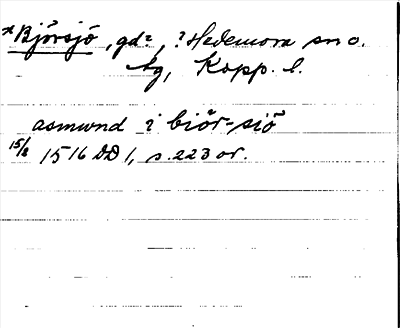 *Björsjö, gd?, ? Hedemora sn o.
tg, Kopp. l.
asmwnd i biör-siö
15/8 1516 DD 1, s. 223 or.